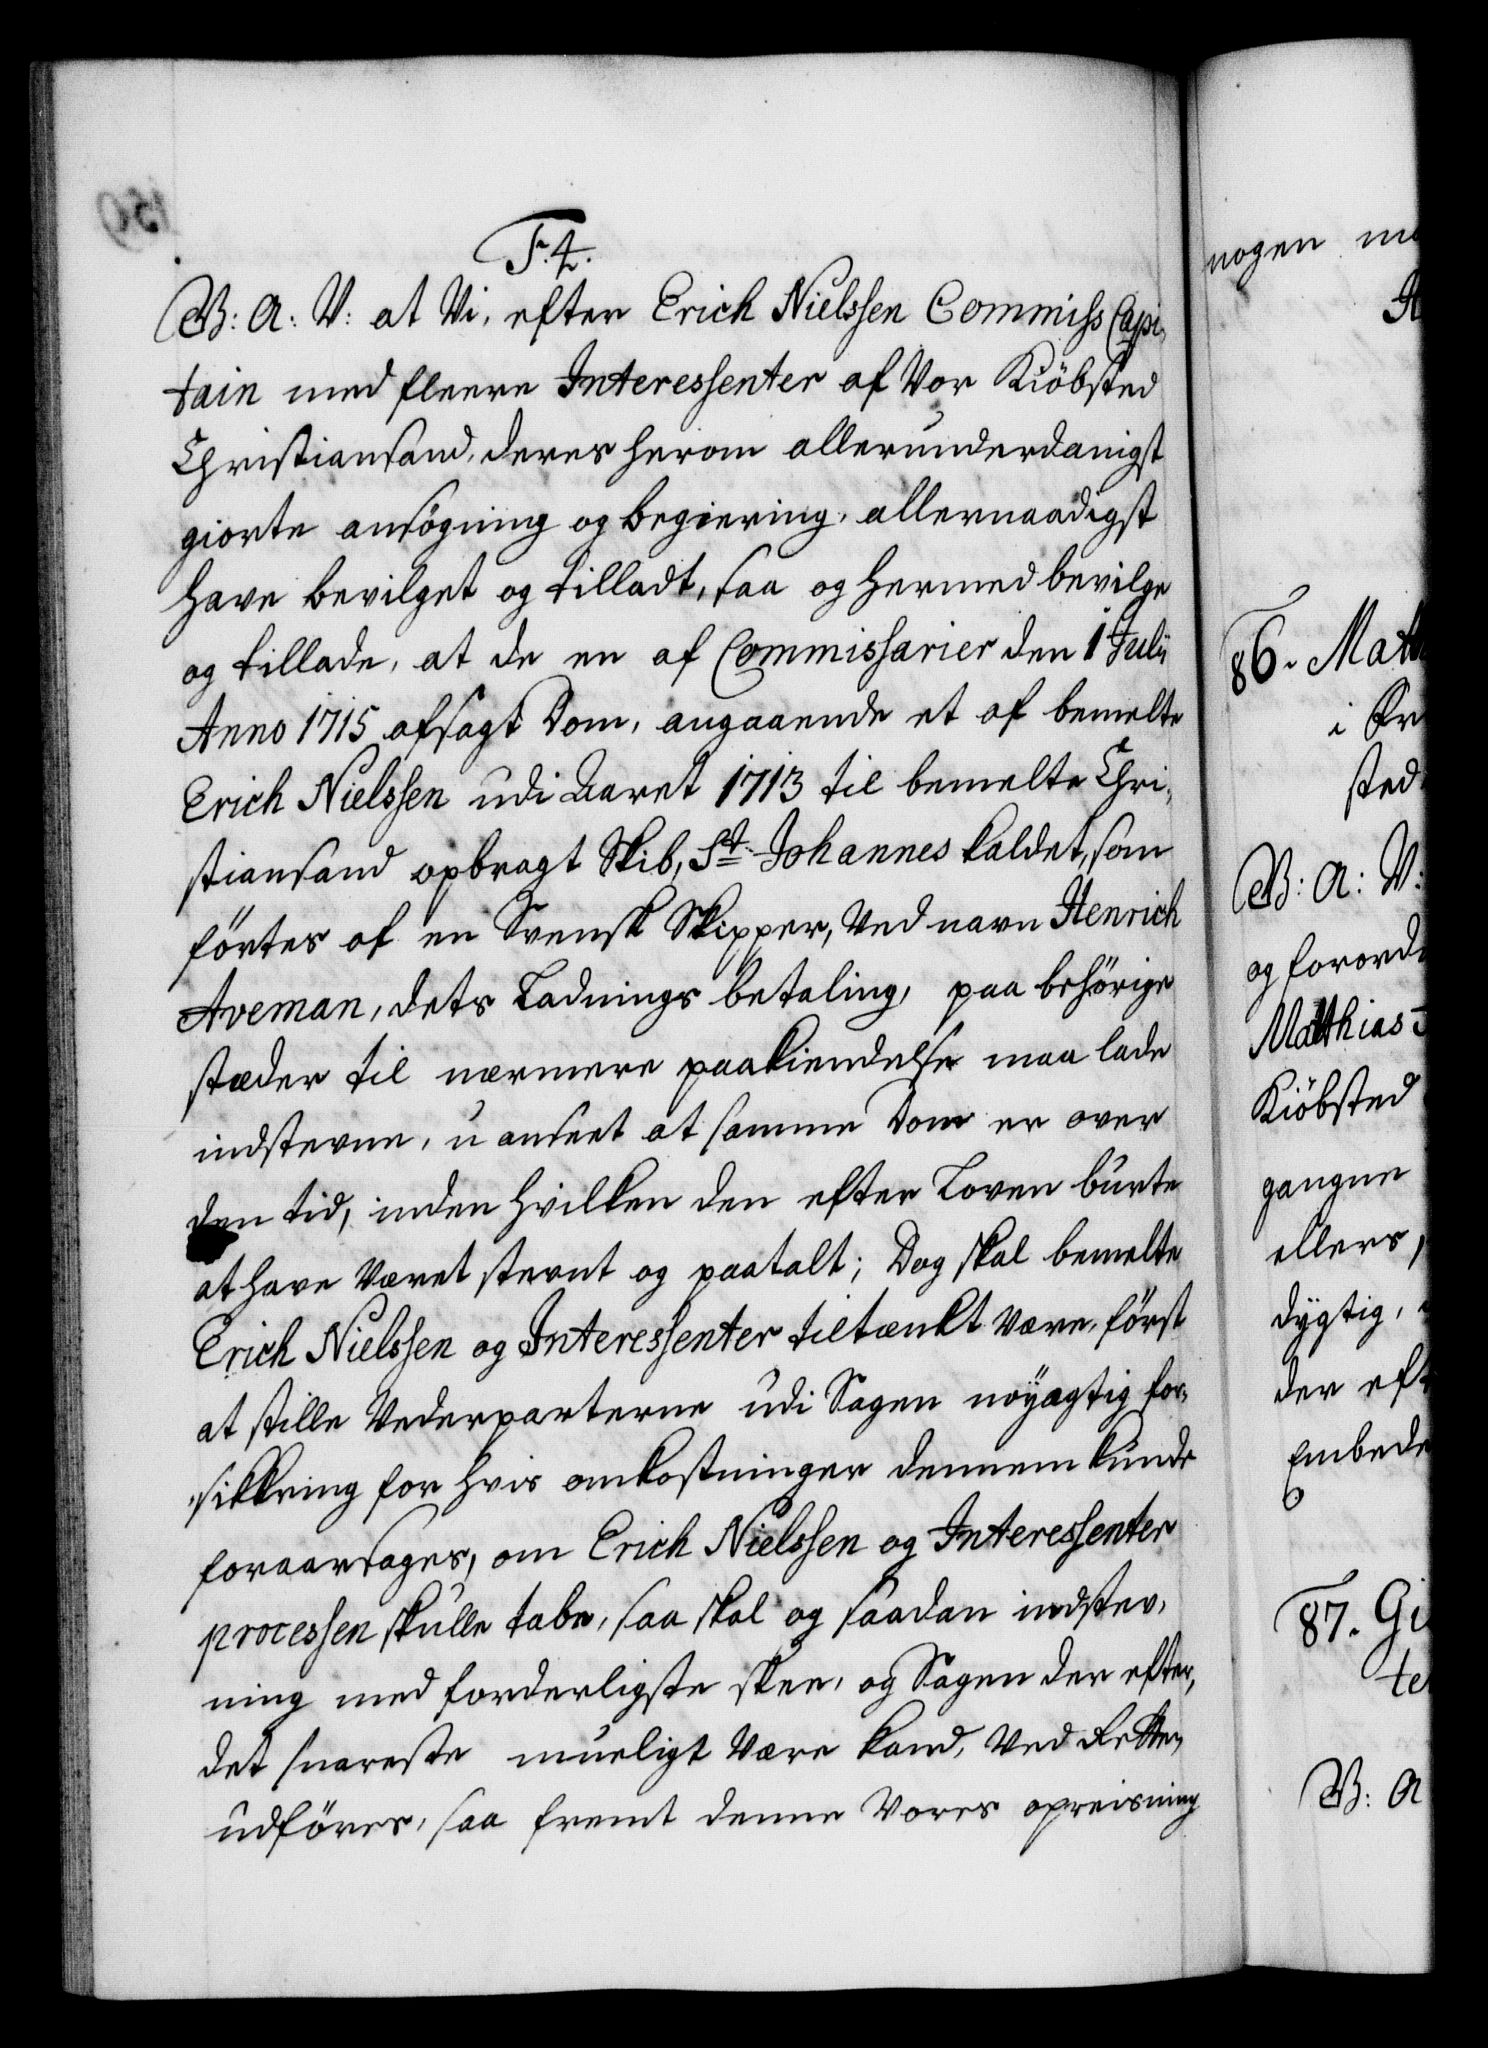 F. 4.
G: A: V: at Vi, efter Erich Nielssen Commiss Capi-
tain med fleere Interessenter af Vor Kiöbsted
Christiansand, deres herom allerunderdanigst
giorte ansögning og begiering, allernaadigst
have bevilget og tilladt, saa og hermed bevilge
og tillade, at de en af Commissarier den 1 Julii
Anno 1715 afsagt Dom, angaaende et af bemelte
Erich Nielssen udi Aaret 1713 til bemelte Chri-
stiansand opbragt Skib, St. Johannes kaldet, som
förtes af en Svensk Skipper, Ved navn Henrich
Aveman, dets Ladnings betaling, paa behörige
stæder til nærmere paakiendelse maa lade
indstevne, uanseet at samme Dom er over
den tid, inden hvilken den efter Loven burte
at have været stevnt og paatalt; Dog skal bemelte
Erich Nielssen og Interessenter tiltænkt være, först
at stille Vederparterne udi Sagen nöyagtig for-
sikkring for hvis omkostninger dennem kunde
foraarsages, om Erich Nielssen og Interessenter
processen skulle tabe, saa skal og saadan indstev-
ning med forderligste skee, og Sagen der efter,
det snareste mueligt være kand, Ved Retten
udföres, saa fremt denne Vores opreisning
nogen
86. Matt
i
sted
G: A: V:
og forord
Matthias
Kiöbsted
gangne
ellers,
dygtig,
der eft
Embede
87. Gi
te
G: A
150